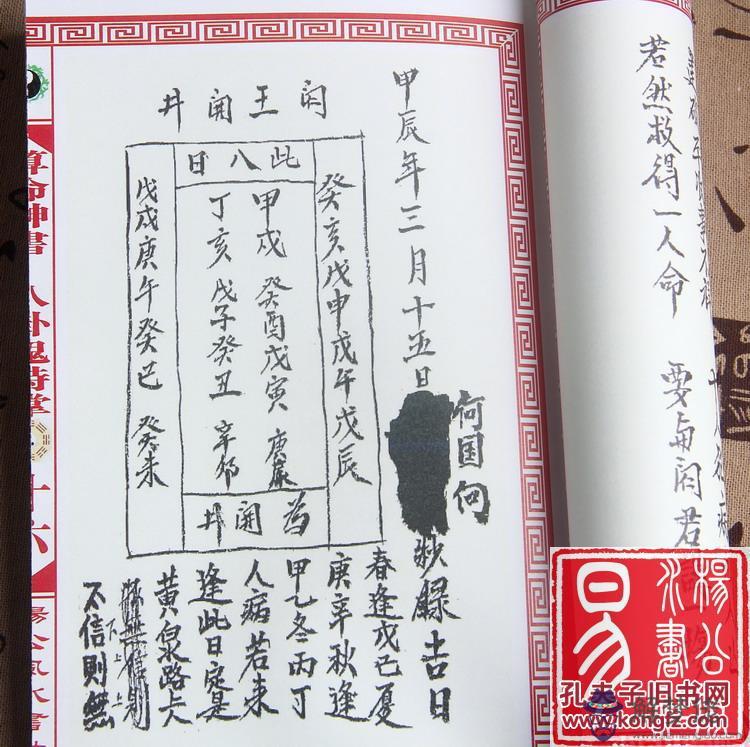 若然救得一人命 要与阎君
甲辰年三月十五日
何国何
抄録吉日
阎王開井
此八日
癸亥戊申戊午戊辰
甲戌癸酉戊寅
丁亥戊子癸丑辛卯
戊戌庚午癸巳癸未
为開井
春逢戊己夏
庚辛秋逢
甲乙冬丙丁
人病若未
逢此日定是
黄泉路上
不信則無
算命神書 八卦鬼時掌 十六
楊公風水書
易
楊公
孔夫子旧书网
www.kongfz.com